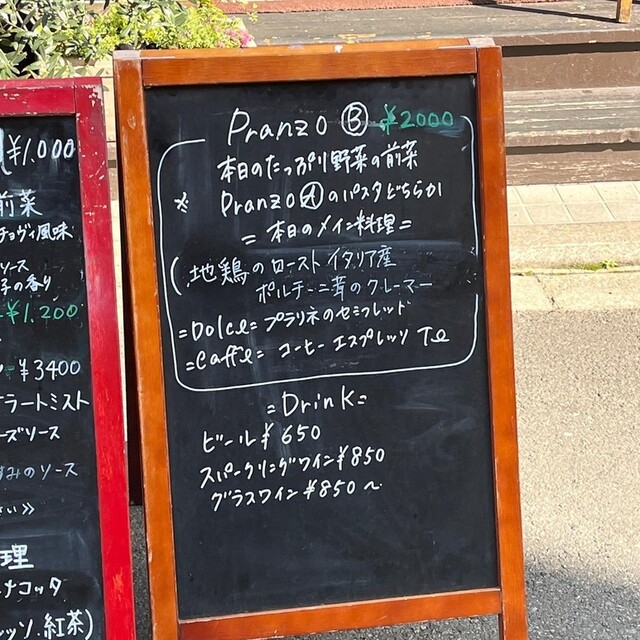 ¥1.000
前菜
チョヴィ風味
ソース
子の香り
¥1.200
¥3400
ラートミスト
ーズソース
すみのソース
さい》
理
ナコッタ
ッソ.紅茶)
Pranzo Ⓑ ¥2000
本日のたっぷり野菜の前菜
※ PranzoⒶのパスタどちらか
=本日のメイン料理=
(地鶏のロースト イタリア産
ポルチーニ茸のクレーマー
=Dolce= プラリネのセミフレッド
=Caffe= コーヒー エスプレッソ Te
=Drink=
ビール¥650
スパークリングワイン¥850
グラスワイン¥850〜